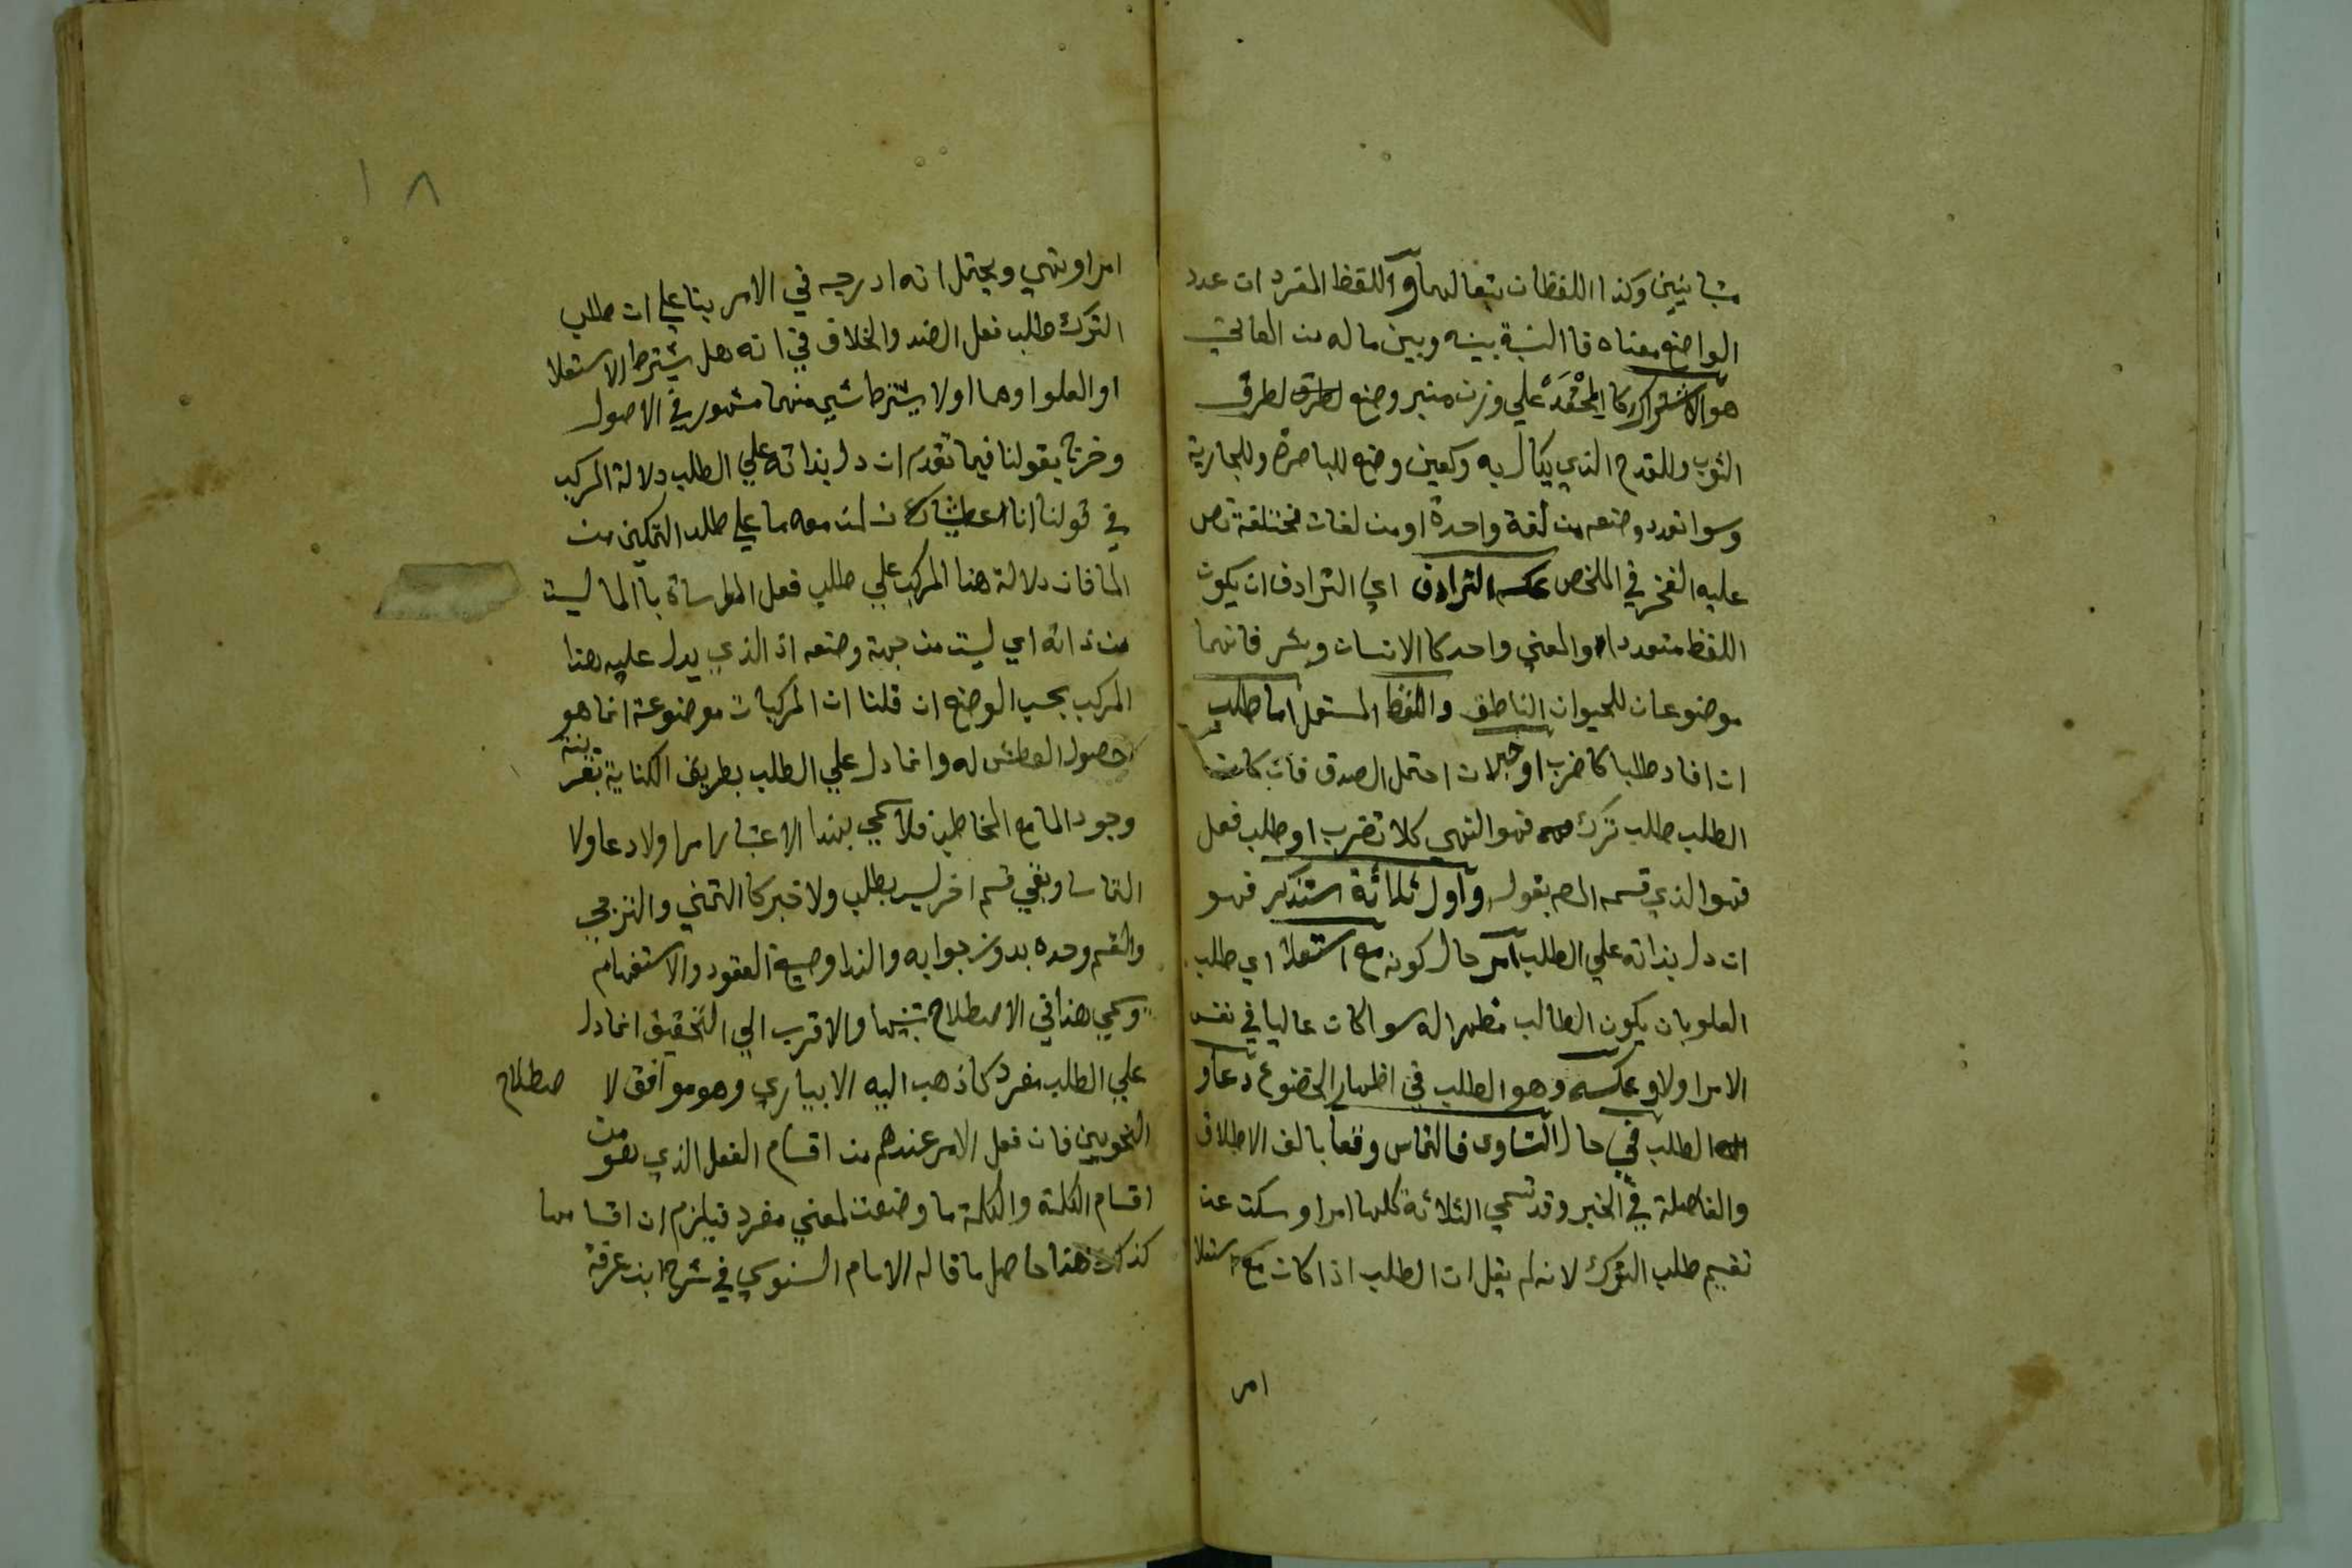 متباينين وكذا اللفظان يتبعا لهما واللفظ المفرد ان عدد
الواضع معناه فا النسبة بينه وبين ماله من المعاني
هو الاشتراك كا المحْفَدْ علي وزن منبر وضع لطرف
الثوب وللقدح الذي يكال به وكعين وضع للباصرة وللجارية
وسوا تعدد وضعه من لغة واحدة او من لغات مختلفة نص
عليه الفخر في الملخص عكسه الترادف اي الترادف ان يكون
اللفظ متعددا والمعني واحد كا الانسان وبشر فانهما
موضوعان للحيوان الناطق واللفظ المستعمل اما طلب
ان افاد طلبا كاضرب او خبر ان احتمل الصدق فان كان
الطلب طلب ترك فهو النهي كلا تضرب او طلب فعل
فهو الذي قسمه المص بقوله واول ثلاثة ستذكر فهو
ان دل بذاته علي الطلب امر حال كونه مع استعلا اي طلب
العلو بان يكون الطالب مظهرا له سوا كان عاليا في نفس
الامر اولا وعكسه وهو الطلب في اظهار الخضوع دعا و
الطلب في حال التساوي فالتماس وقعا بالف الاطلاق
والفاصلة في الخبر وقد تسمي الثلاثة كلها امرا وسكت عن
تقسيم طلب الترك لانه لم يقل ان الطلب اذا كان مع استعلا
امر
١٨
امر او نهي ويحتمل انه ادرجه في الامر بنا علي ان طلب
الترك طلب فعل الضد والخلاف في انه هل يشترط الاستعلا
او العلو او هما او لا يشترط شي منهما مشهور في الاصول
وخرج بقولنا فيما تقدم ان دل بذاته علي الطلب دلالة المركب
في قولنا انا عطشان لمن معه ما علي طلب التمكين من
الما فان دلالة هذا المركب علي طلب فعل المواساة با الما ليست
من ذاته اي ليست من جهة وضعه اذ الذي يدل عليه هذا
المركب بحسب الوضع ان قلنا ان المركبات موضوعة انما هو
حصول العطش له وانما دل علي الطلب بطريق الكناية بقرينة
وجود الما مع المخاطب فلا سمي بهذا الاعتبار امرا ولا دعا ولا
التماسا وبقي قسم اخر ليس بطلب ولا خبر كا التمني والترجي
والقسم وحده بدون جوابه والندا وصيغ العقود والاستفهام
وسمي هذا في الاصطلاح تنبيها والاقرب الي التحقيق انما دل
علي الطلب مفرد كما ذهب اليه الابياري وهو موافق لا صطلاح
النحويين فان فعل الامر عندهم من اقسام الفعل الذي هو من
اقسام الكلمة والكلمة ما وضعت لمعني مفرد فيلزم ان اقسامها
كذلك هذا حاصل ما قاله الامام السنوسي في شرح ابن عرفة